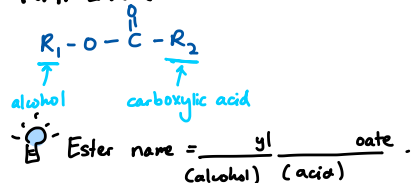 O
R₁ - O - C - R₂
alcohol carboxylic acid
Ester name = ____yl ____oate.
(alcohol) (acid)